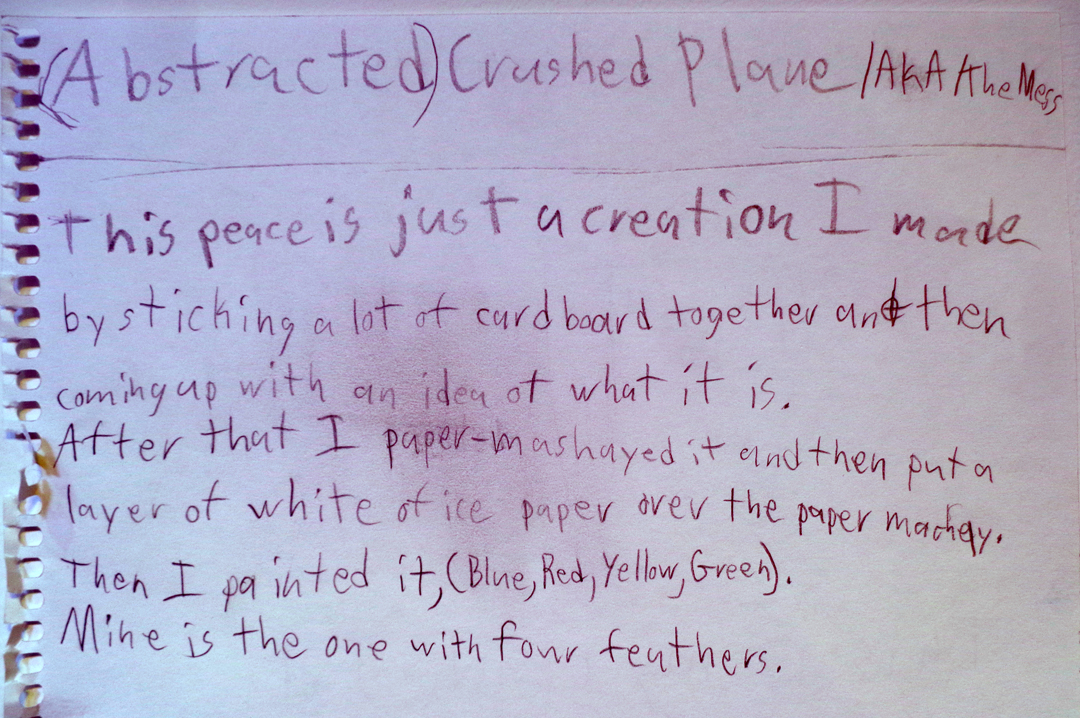 (Abstracted) Crushed Plane /AKA/the Mess
This peace is just a creation I made
by sticking a lot of cardboard together and then
coming up with an idea of what it is.
After that I paper-mashayed it and then put a
layer of white of ice paper over the paper machey.
Then I painted it, (Blue, Red, Yellow, Green).
Mine is the one with four feathers.